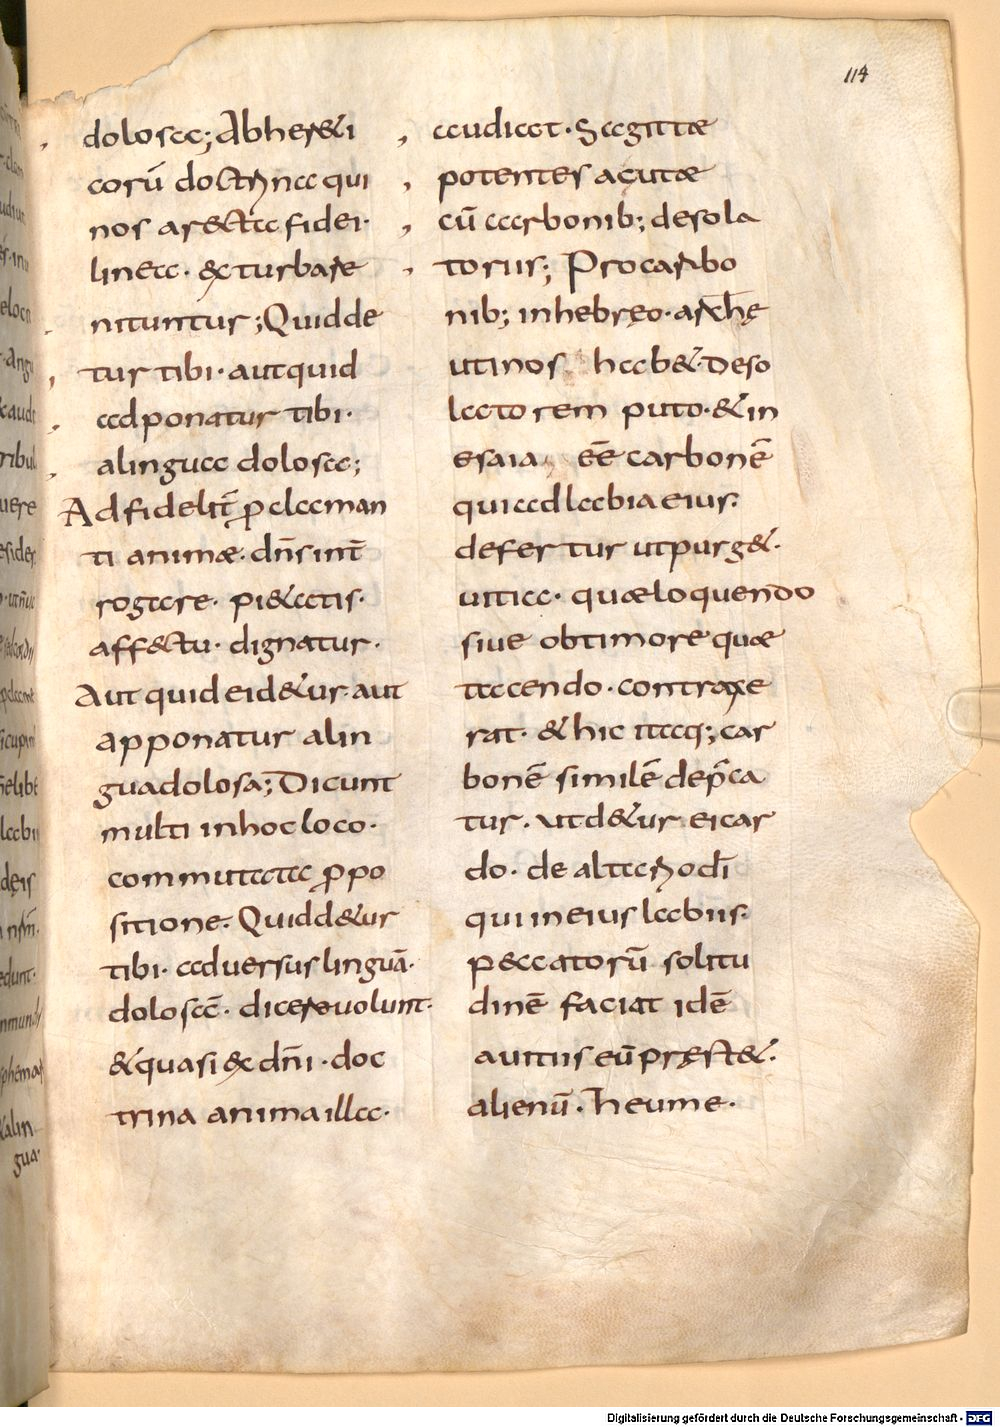 114
dolosa; Abhereti
corū doctrina qui
nos arecta fidei·
linea· & turbare
nituntur; Quidde
tur tibi· autquid
adponatur tibi·
alingua dolosa;
Ad fidelit̄ ꝓclaman
ti animæ· dn̄s int̄
rogare· pi&atis·
affectu· dignatur·
Aut quid eid&ur· aut
apponatur alin
guadolosa; Dicunt
multi inhoc loco·
commutata ꝓpo
sitione· Quidd&ur
tibi· aduersus linguā·
dolosā· dicere uolunt·
&quasi ex dn̄i· doc
trina anima illa·
audiat· Sagittæ
potentes acutæ
cū carbonib; desola
toriis; Procarbo
nib; inhebręo·
utinos hab&· Deso
latorem puto· & in
esaia eē carbonē
quiadlabia eius·
defertur utpurg&·
uitia· quæloquendo
siue obtimore quæ
tacendo· contraxe
rat· & hic itaq; car
bonē similē dep̄ca
tur· utd&ur ei car
do· de alta
qui in eius labiis·
peccatorū solitu
dinē faciat idē
auitiis eū pręst&·
alienū· heume·
Digitalisierung gefördert durch die Deutsche Forschungsgemeinschaft - DFG